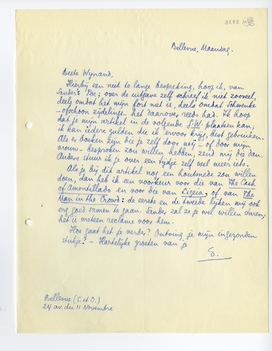 Bellevue, Maandag.
Beste Wijnand,
Hierbij een niet te lange bespreking, hoop ik, van
Sander's Poe; over de uitgave zelf schreef ik niet zooveel,
deels omdat het mijn fort niet is, deels omdat Schwencke
- ofschoon zijdelings - het daarover reeds had. Ik hoop
dat je mijn artikel in de volgende plaatsen kan;
ik kan iedere gulden die ik ervoor krijg, best gebruiken.
Als er boeken zijn die je zelf door mij - of door mijn
vrouw - besproken zou willen hebben, zend mij die dan.
Anders stuur ik je over een tijdje zelf wel weer iets.
Als je bij dit artikel nog een houtsnede zou willen
doen, dan heb ik een voorkeur voor die van The Cask
of Amontillado en voor die van Ligeia, of van The
Man in the Crowd: de eerste en de tweede lijken mij ook
erg goed samen te gaan. Sander zal ze je wel willen sturen,
het is meteen reclame voor hem.
Hoe gaat het je verder? Ontving je mijn ingezonden
stukje? - Hartelijke groeten van je
E.
Bellevue (S. et O.)
24 av. du 11 Novembre